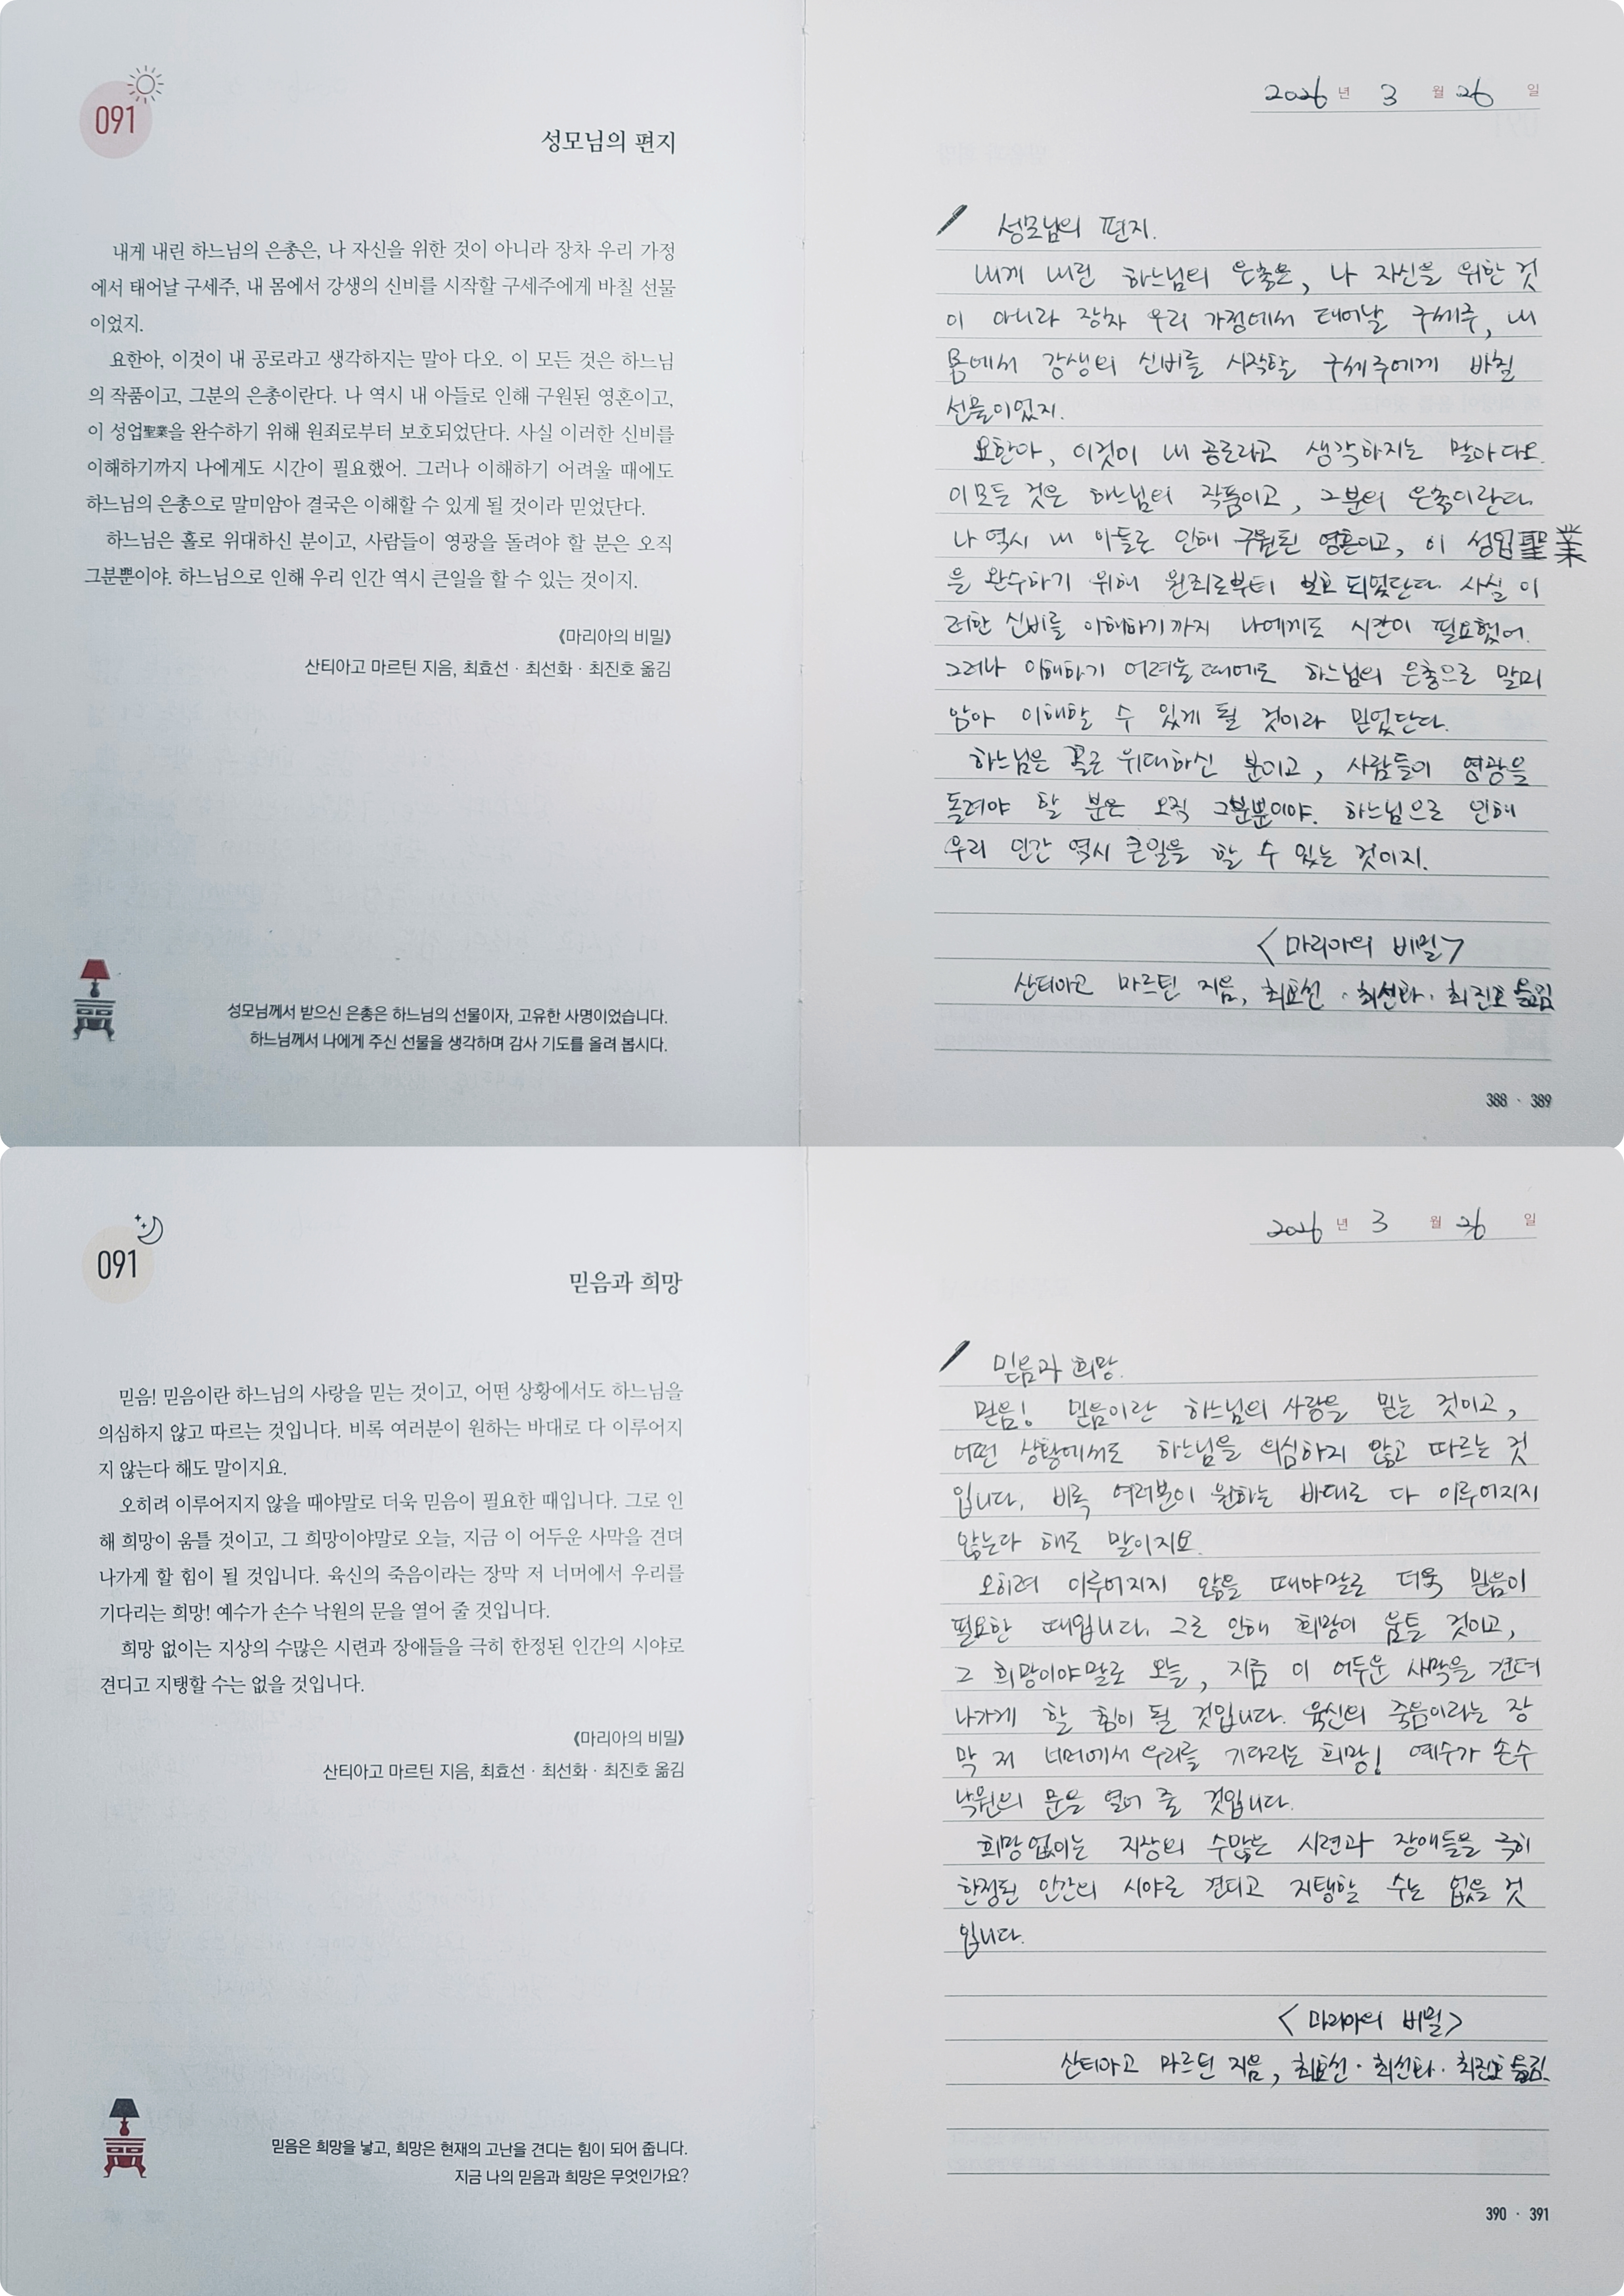 091
성모님의 편지
내게 내린 하느님의 은총은, 나 자신을 위한 것이 아니라 장차 우리 가정
에서 태어날 구세주, 내 몸에서 강생의 신비를 시작할 구세주에게 바칠 선물
이었지.
요한아, 이것이 내 공로라고 생각하지는 말아 다오. 이 모든 것은 하느님
의 작품이고, 그분의 은총이란다. 나 역시 내 아들로 인해 구원된 영혼이고,
이 성업聖業을 완수하기 위해 원죄로부터 보호되었단다. 사실 이러한 신비를
이해하기까지 나에게도 시간이 필요했어. 그러나 이해하기 어려울 때에도
하느님의 은총으로 말미암아 결국은 이해할 수 있게 될 것이라 믿었단다.
하느님은 홀로 위대하신 분이고, 사람들이 영광을 돌려야 할 분은 오직
그분뿐이야. 하느님으로 인해 우리 인간 역시 큰일을 할 수 있는 것이지.
《마리아의 비밀》
산티아고 마르틴 지음, 최효선 · 최선화 · 최진호 옮김
성모님께서 받으신 은총은 하느님의 선물이자, 고유한 사명이었습니다.
하느님께서 나에게 주신 선물을 생각하며 감사 기도를 올려 봅시다.
2026 년 3 월 26 일
성모님의 편지.
내게 내린 하느님의 은총은, 나 자신을 위한 것
이 아니라 장차 우리 가정에서 태어날 구세주, 내
몸에서 강생의 신비를 시작할 구세주에게 바칠
선물이었지.
요한아, 이것이 내 공로라고 생각하지는 말아 다오.
이 모든 것은 하느님의 작품이고, 그분의 은총이란다.
나 역시 내 아들로 인해 구원된 영혼이고, 이 성업聖業
을 완수하기 위해 원죄로부터 보호 되었단다. 사실 이
러한 신비를 이해하기까지 나에게도 시간이 필요했어.
그러나 이해하기 어려울 때에도 하느님의 은총으로 말미
암아 이해할 수 있게 될 것이라 믿었단다.
하느님은 홀로 위대하신 분이고, 사람들이 영광을
돌려야 할 분은 오직 그분뿐이야. 하느님으로 인해
우리 인간 역시 큰일을 할 수 있는 것이지.
<마리아의 비밀>
산티아고 마르틴 지음, 최효선 · 최선화 · 최진호 옮김
388 · 389
091
믿음과 희망
믿음! 믿음이란 하느님의 사랑을 믿는 것이고, 어떤 상황에서도 하느님을
의심하지 않고 따르는 것입니다. 비록 여러분이 원하는 바대로 다 이루어지
지 않는다 해도 말이지요.
오히려 이루어지지 않을 때야말로 더욱 믿음이 필요한 때입니다. 그로 인
해 희망이 움틀 것이고, 그 희망이야말로 오늘, 지금 이 어두운 사막을 견뎌
나가게 할 힘이 될 것입니다. 육신의 죽음이라는 장막 저 너머에서 우리를
기다리는 희망! 예수가 손수 낙원의 문을 열어 줄 것입니다.
희망 없이는 지상의 수많은 시련과 장애들을 극히 한정된 인간의 시야로
견디고 지탱할 수는 없을 것입니다.
《마리아의 비밀》
산티아고 마르틴 지음, 최효선 · 최선화 · 최진호 옮김
믿음은 희망을 낳고, 희망은 현재의 고난을 견디는 힘이 되어 줍니다.
지금 나의 믿음과 희망은 무엇인가요?
2026 년 3 월 26 일
믿음과 희망.
믿음! 믿음이란 하느님의 사랑을 믿는 것이고,
어떤 상황에서도 하느님을 의심하지 않고 따르는 것
입니다. 비록 여러분이 원하는 바대로 다 이루어지지
않는다 해도 말이지요.
오히려 이루어지지 않을 때야말로 더욱 믿음이
필요한 때입니다. 그로 인해 희망이 움틀 것이고,
그 희망이야말로 오늘, 지금 이 어두운 사막을 견뎌
나가게 할 힘이 될 것입니다. 육신의 죽음이라는 장
막 저 너머에서 우리를 기다리는 희망! 예수가 손수
낙원의 문을 열어 줄 것입니다.
희망 없이는 지상의 수많은 시련과 장애들을 극히
한정된 인간의 시야로 견디고 지탱할 수는 없을 것
입니다.
<마리아의 비밀>
산티아고 마르틴 지음, 최효선 · 최선화 · 최진호 옮김.
390 · 391